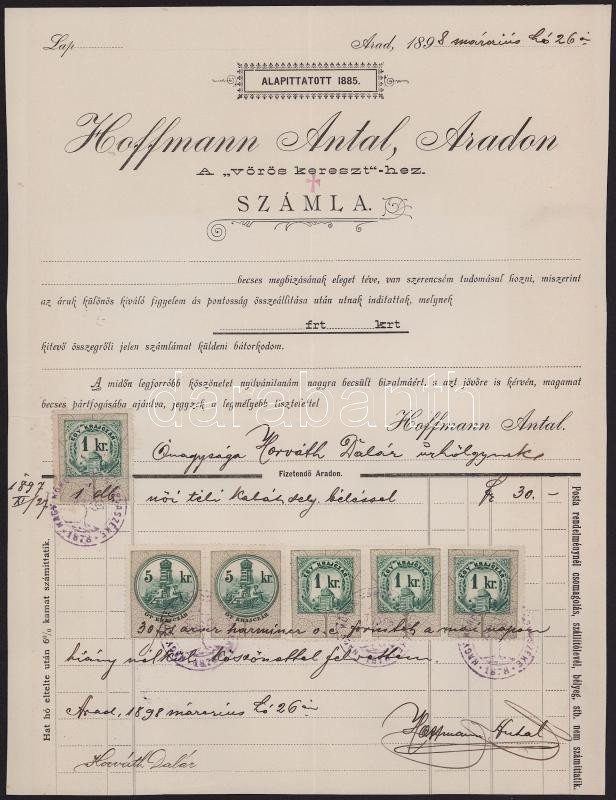 Lap
Arad, 1898 március hó 26 án
ALAPITTATOTT 1885.
Hoffmann Antal, Aradon
A „vörös kereszt"-hez.
SZÁMLA.
becses megbizásának eleget téve, van szerencsém tudomásul hozni, miszerint
az áruk különös kiváló figyelem és pontosság összeállitása után utnak indittattak, melynek
frt krt
kitevő összegről jelen számlámat küldeni bátorkodom.
A midőn legforróbb köszönetet nyilvánitanám nagyra becsült bizalmáért, s azt jövőre is kérvén, magamat
becses pártfogásába ajánlva, jegyzek a legmélyebb tisztelettel
Hoffmann Antal.
EGY KRAJCZÁR
1 kr.
Önagysága Horváth Dalár urhölgynek
Fizetendő Aradon.
1897
XI/27
1 db. női téli kabát sely. béléssel fr 30.–
5 kr.
ÖT KRAJCZÁR
5 kr.
ÖT KRAJCZÁR
EGY KRAJCZÁR
1 kr.
EGY KRAJCZÁR
1 kr.
EGY KRAJCZÁR
1 kr.
30 frt azaz harmincz o. é. forintot a mai napon
hiány nélkül köszönettel felvettem.
Arad, 1898 március hó 26 án
Hoffmann Antal
Horváth Dalár
Hat hó eltelte után 6% kamat számittatik.
Posta rendelménynél csomagolás, szállitólevél, bélyeg, stb. nem számittatik.
darabanth